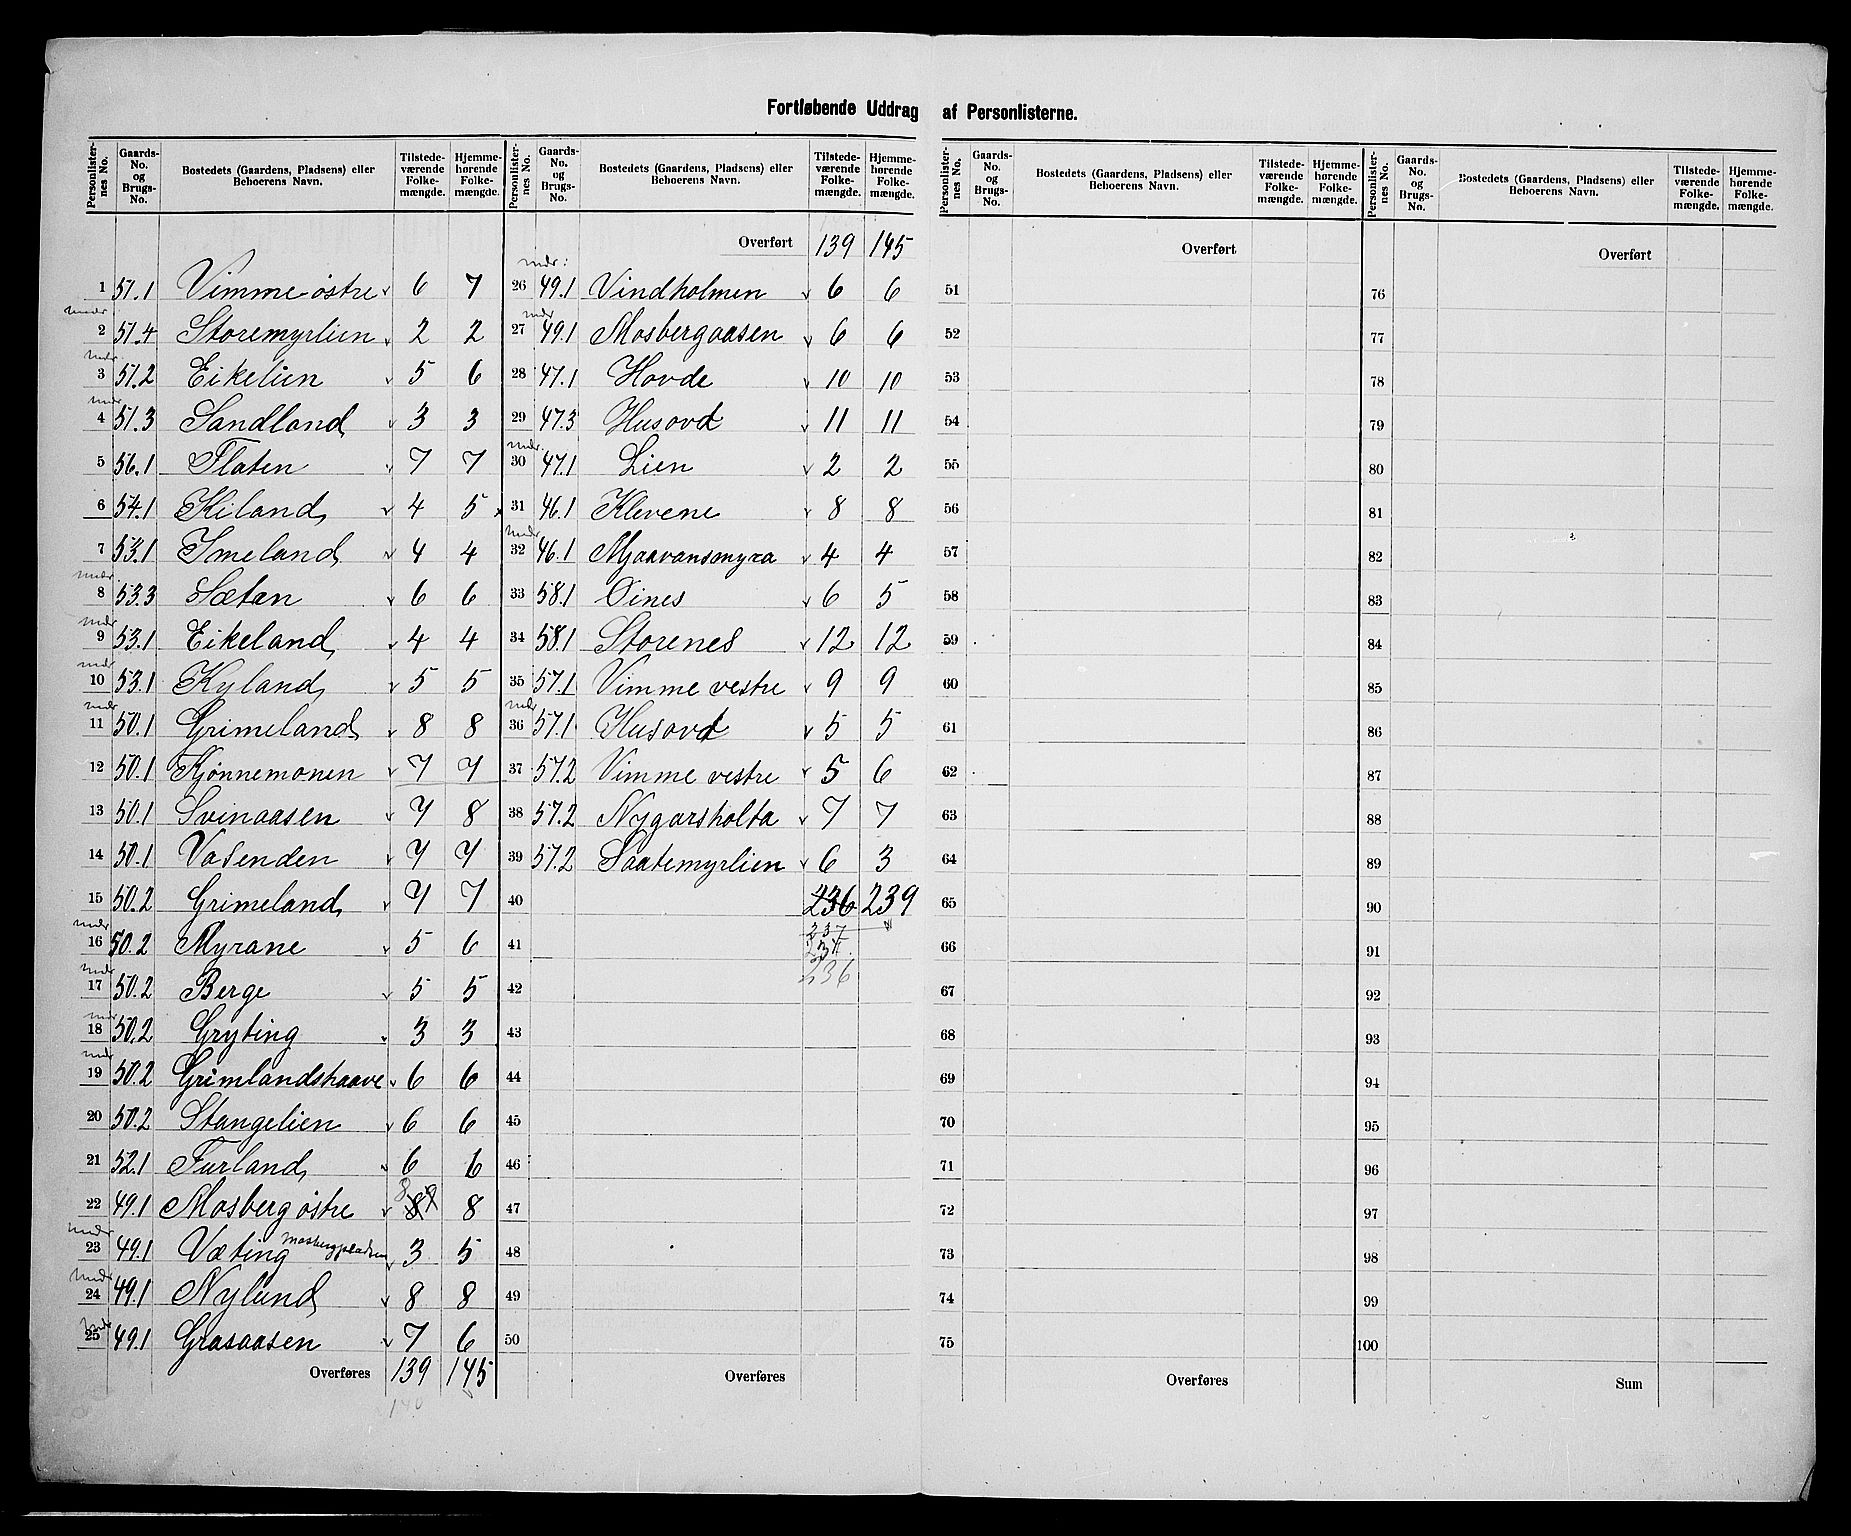 Fortløbende Uddrag af Personlisterne.
Personlister-nes No. Gaards-No. og Brugs-No. Bostedets (Gaardens, Pladsens) eller Beboerens Navn. Tilstede-værende Folke-mængde. Hjemme-hørende Folke-mængde. Personlister-nes No. Gaards-No. og Brugs-No. Bostedets (Gaardens, Pladsens) eller Beboerens Navn. Tilstede-værende Folke-mængde. Hjemme-hørende Folke-mængde. Personlister-nes No. Gaards-No. og Brugs-No. Bostedets (Gaardens, Pladsens) eller Beboerens Navn. Tilstede-værende Folke-mængde. Hjemme-hørende Folke-mængde. Personlister-nes No. Gaards-No. og Brugs-No. Bostedets (Gaardens, Pladsens) eller Beboerens Navn. Tilstede-værende Folke-mængde. Hjemme-hørende Folke-mængde.
1 51.1 Vimme østre 6 7
2 51.4 Storemyrlien 2 2
3 51.2 Eikelien 5 6
4 51.3 Sandland 3 3
5 56.1 Flaten 7 7
6 54.1 Kiland 4 5
7 53.1 Imeland 4 4
8 53.3 Sætan 6 6
9 53.1 Eikeland 4 4
10 53.1 Kyland 5 5
11 50.1 Grimeland 8 8
12 50.1 Kjønnemonen 7 7
13 50.1 Svinaasen 7 8
14 50.1 Vasenden 7 7
15 50.2 Grimeland 7 7
16 50.2 Myrane 5 6
17 50.2 Berge 5 5
18 50.2 Gryting 3 3
19 50.2 Grimlandshaave 6 6
20 50.2 Stangelien 6 6
21 52.1 Furland 6 6
22 49.1 Mosberg østre 8 8
23 49.1 Væting Mosbergpladsen 3 5
24 49.1 Nylund 8 8
25 49.1 Grasaasen 7 6
Overføres 139 145
140
Overført 139 145
26 49.1 Vindholmen 6 6
27 49.1 Mosbergaasen 6 6
28 47.1 Hovde 10 10
29 47.3 Husovd 11 11
30 47.1 Lien 2 2
31 46.1 Klevene 8 8
32 46.1 Mjaavansmyra 4 4
33 58.1 Øines 6 5
34 58.1 Storenes 12 12
35 57.1 Vimme vestre 9 9
36 57.1 Husovd 5 5
37 57.2 Vimme vestre 5 6
38 57.2 Nygarsholta 7 7
39 57.2 Saatemyrlien 6 3
40 236 239
41 237
42 236
43
44
45
46
47
48
49
50
Overføres
Overført
51
52
53
54
55
56
57
58
59
60
61
62
63
64
65
66
67
68
69
70
71
72
73
74
75
Overføres
Overført
76
77
78
79
80
81
82
83
84
85
86
87
88
89
90
91
92
93
94
95
96
97
98
99
100
Sum